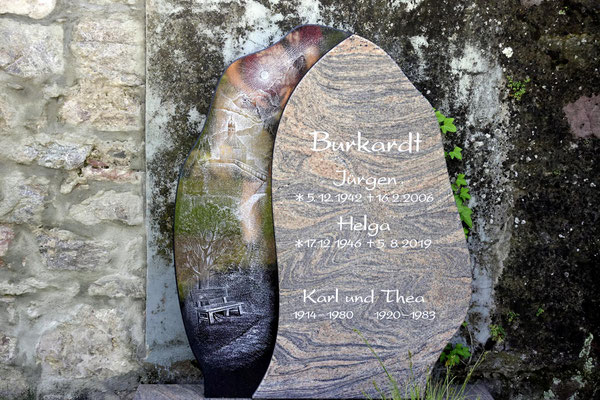 Burkardt
Jürgen
* 5.12.1942 + 16.2.2006
Helga
* 17.12.1946 + 5.8.2019
Karl und Thea
1914 – 1980 1920 – 1983